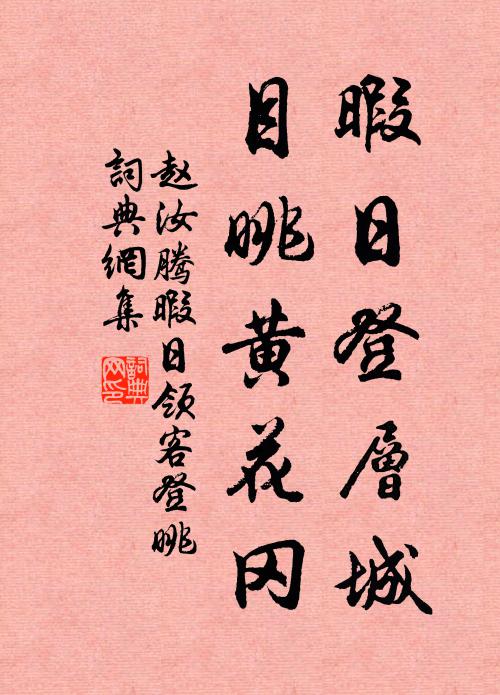 暇日登層城
目眺黄花冈
赵汝腾暇日领客登眺
詞典網集
詞典網印